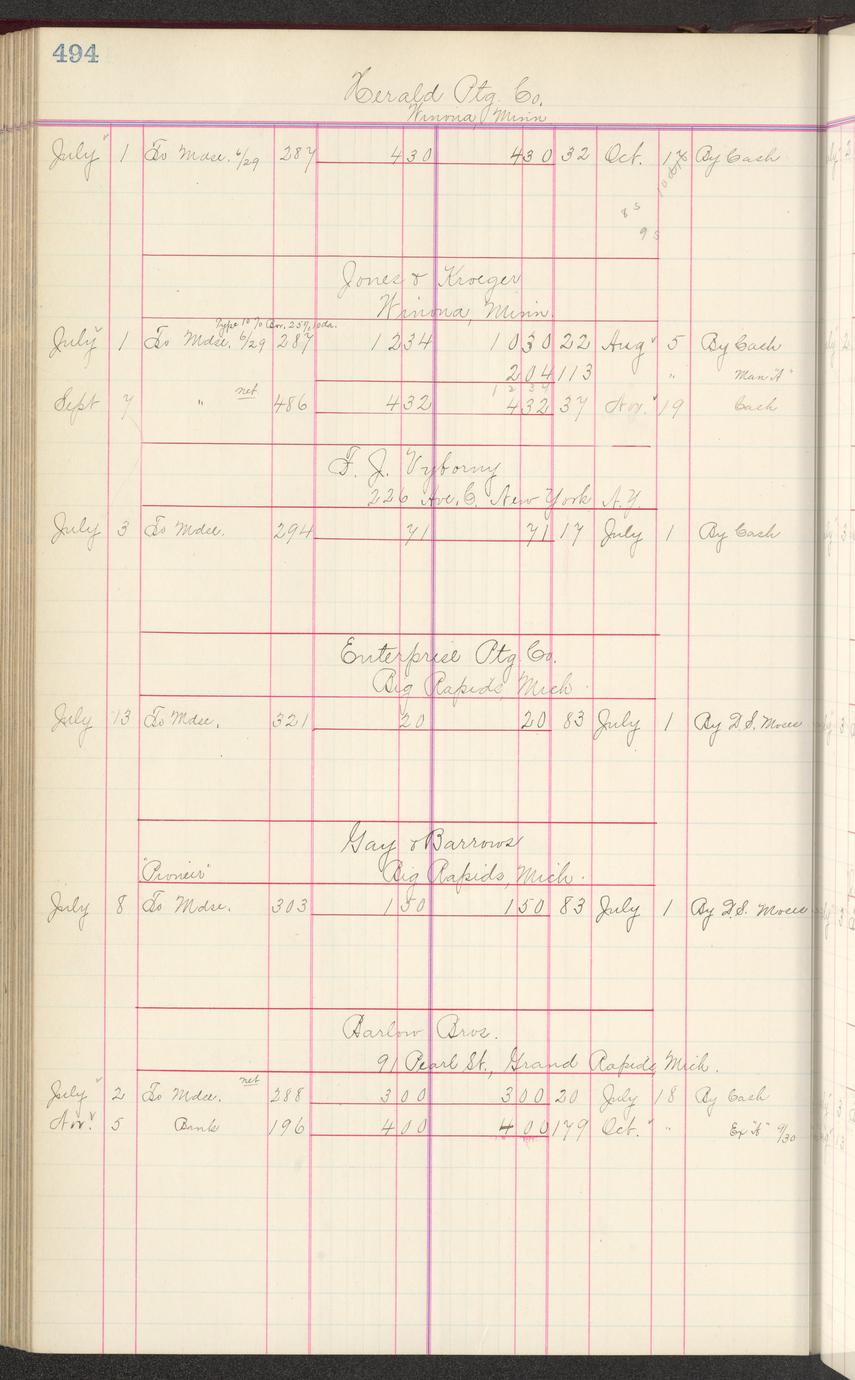 494
Herald Ptg. Co.
Winona, Minn
July 1 To Mdse. 6/29 287 430 430 32 Oct. 17 By Cash
8 5
9 5
Jones & Kroeger
Winona, Minn.
Type 10% Cor. 25%, 10da.
July 1 To Mdse. 6/29 287 1234 1030 22 Aug 5 By Cash
204 113 " Man "A"
1234
Sept 7 " net 486 432 432 37 Nov. 19 Cash
F. J. Vyborny
226 Ave. C. New York N.Y.
July 3 To Mdse. 294 71 71 17 July 1 By Cash
Enterprise Ptg. Co.
Big Rapids, Mich.
July 13 To Mdse. 321 20 20 83 July 1 By D.S. Moses
Gay & Barrows
"Pioneer" Big Rapids, Mich.
July 8 To Mdse. 303 150 150 83 July 1 By D.S. Moses
Barlow Bros.
91 Pearl St., Grand Rapids, Mich.
July 2 To Mdse. net 288 300 300 20 July 18 By Cash
Nov. 5 Bank 196 400 400 179 Oct. " Ex "A" 9/30